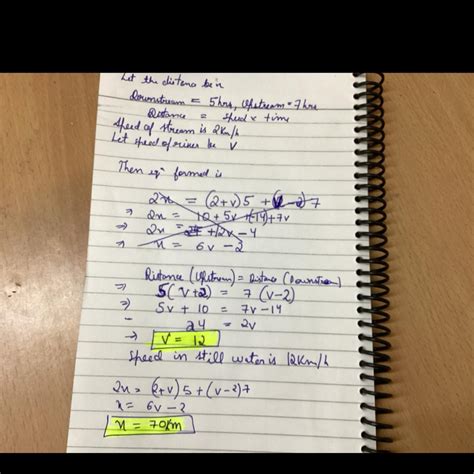 Let the distance be x
Downstream = 5hrs, Upstream = 7hrs
Distance = speed x time
Speed of stream is 2Km/h
Let speed of river be V
Then eqⁿ formed is
2x = (2+v)5 + (v-2)7
⇒ 2x = 10 + 5v + (-14) + 7v
⇒ 2x = + 12v - 4
⇒ x = 6v - 2
Distance (Upstream) = Distance (Downstream)
⇒ 5(v+2) = 7(v-2)
⇒ 5v + 10 = 7v - 14
- 24 = 2v
→ V = 12
Speed in still water is 12Km/h
2x = (2+v)5 + (v-2)7
x = 6v - 2
x = 70Km